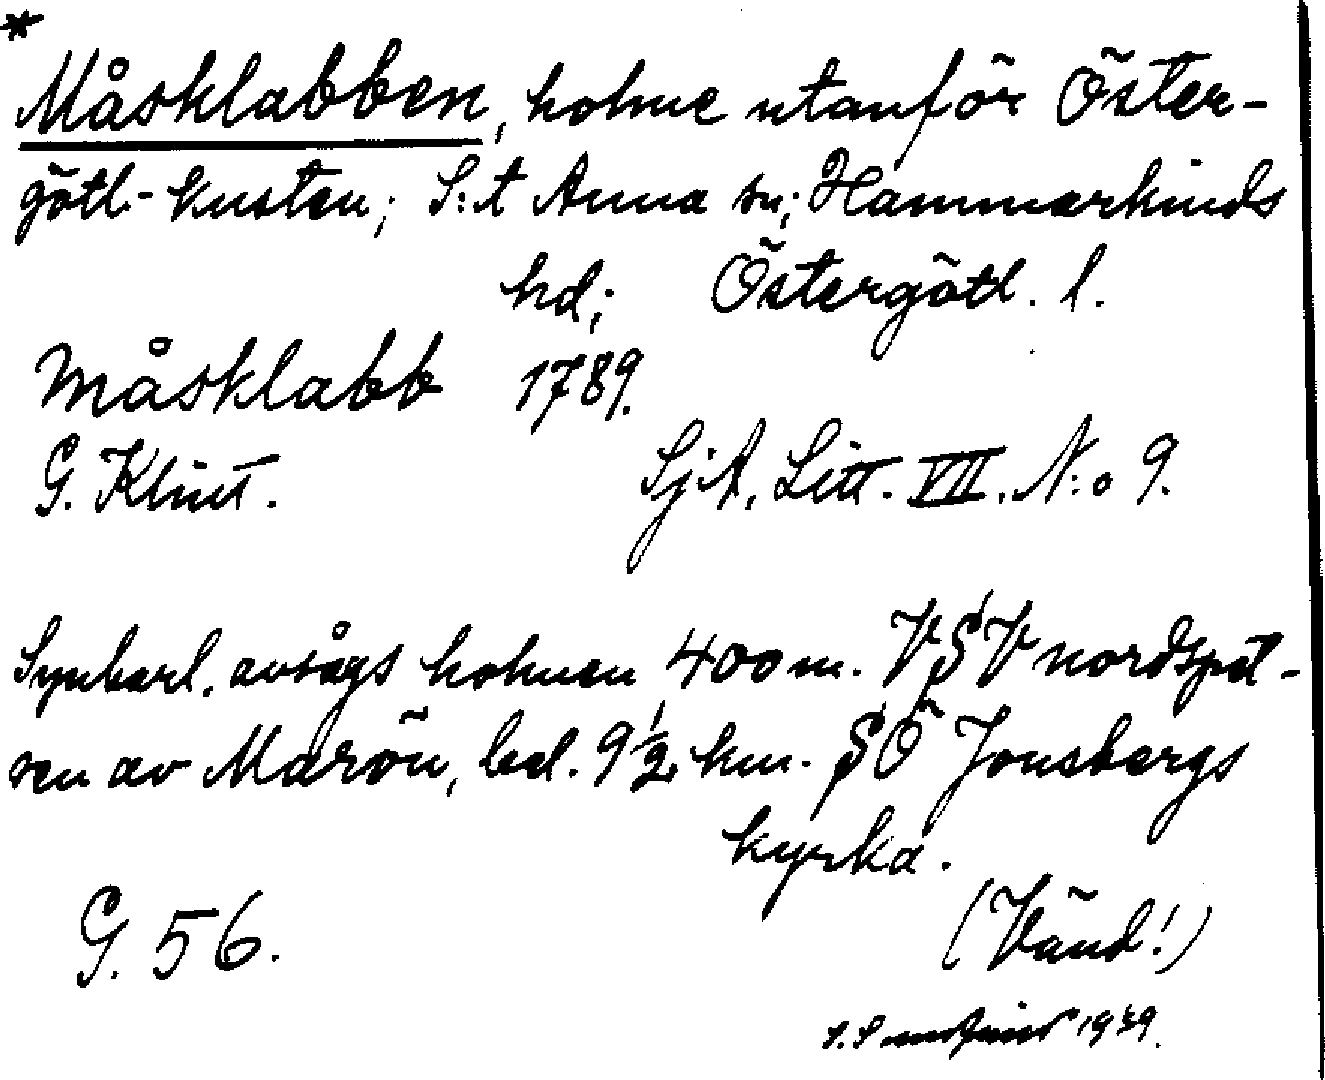 *
Måsklabben, holme utanför Öster-
götl-kusten; S:t Anna sn; Hammarkinds
hd; Östergötl. l.
Måsklabb 1789.
G. Klint. SjA, Litt. VII. N:o 9.
Synbarl. avsågs holmen 400 m. VSV nordspet-
sen av Marön, bel. 9 1/2 km. SÖ Jonsbergs
kyrka.
G. 56. (Vänd!)